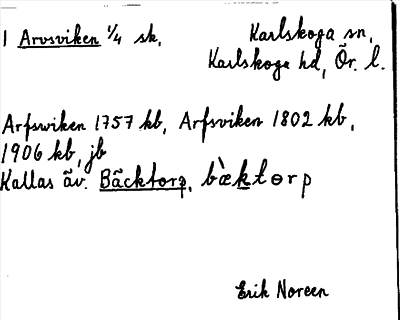 1 Arvsviken 1/4 sk. Karlskoga sn.
Karlskoga hd, Ör. l.
Arfswiken 1757 kb, Arfsviken 1802 kb,
1906 kb, jb
Kallas äv. Bäcktorp, bæ̀ktɵrp
Erik Noreen